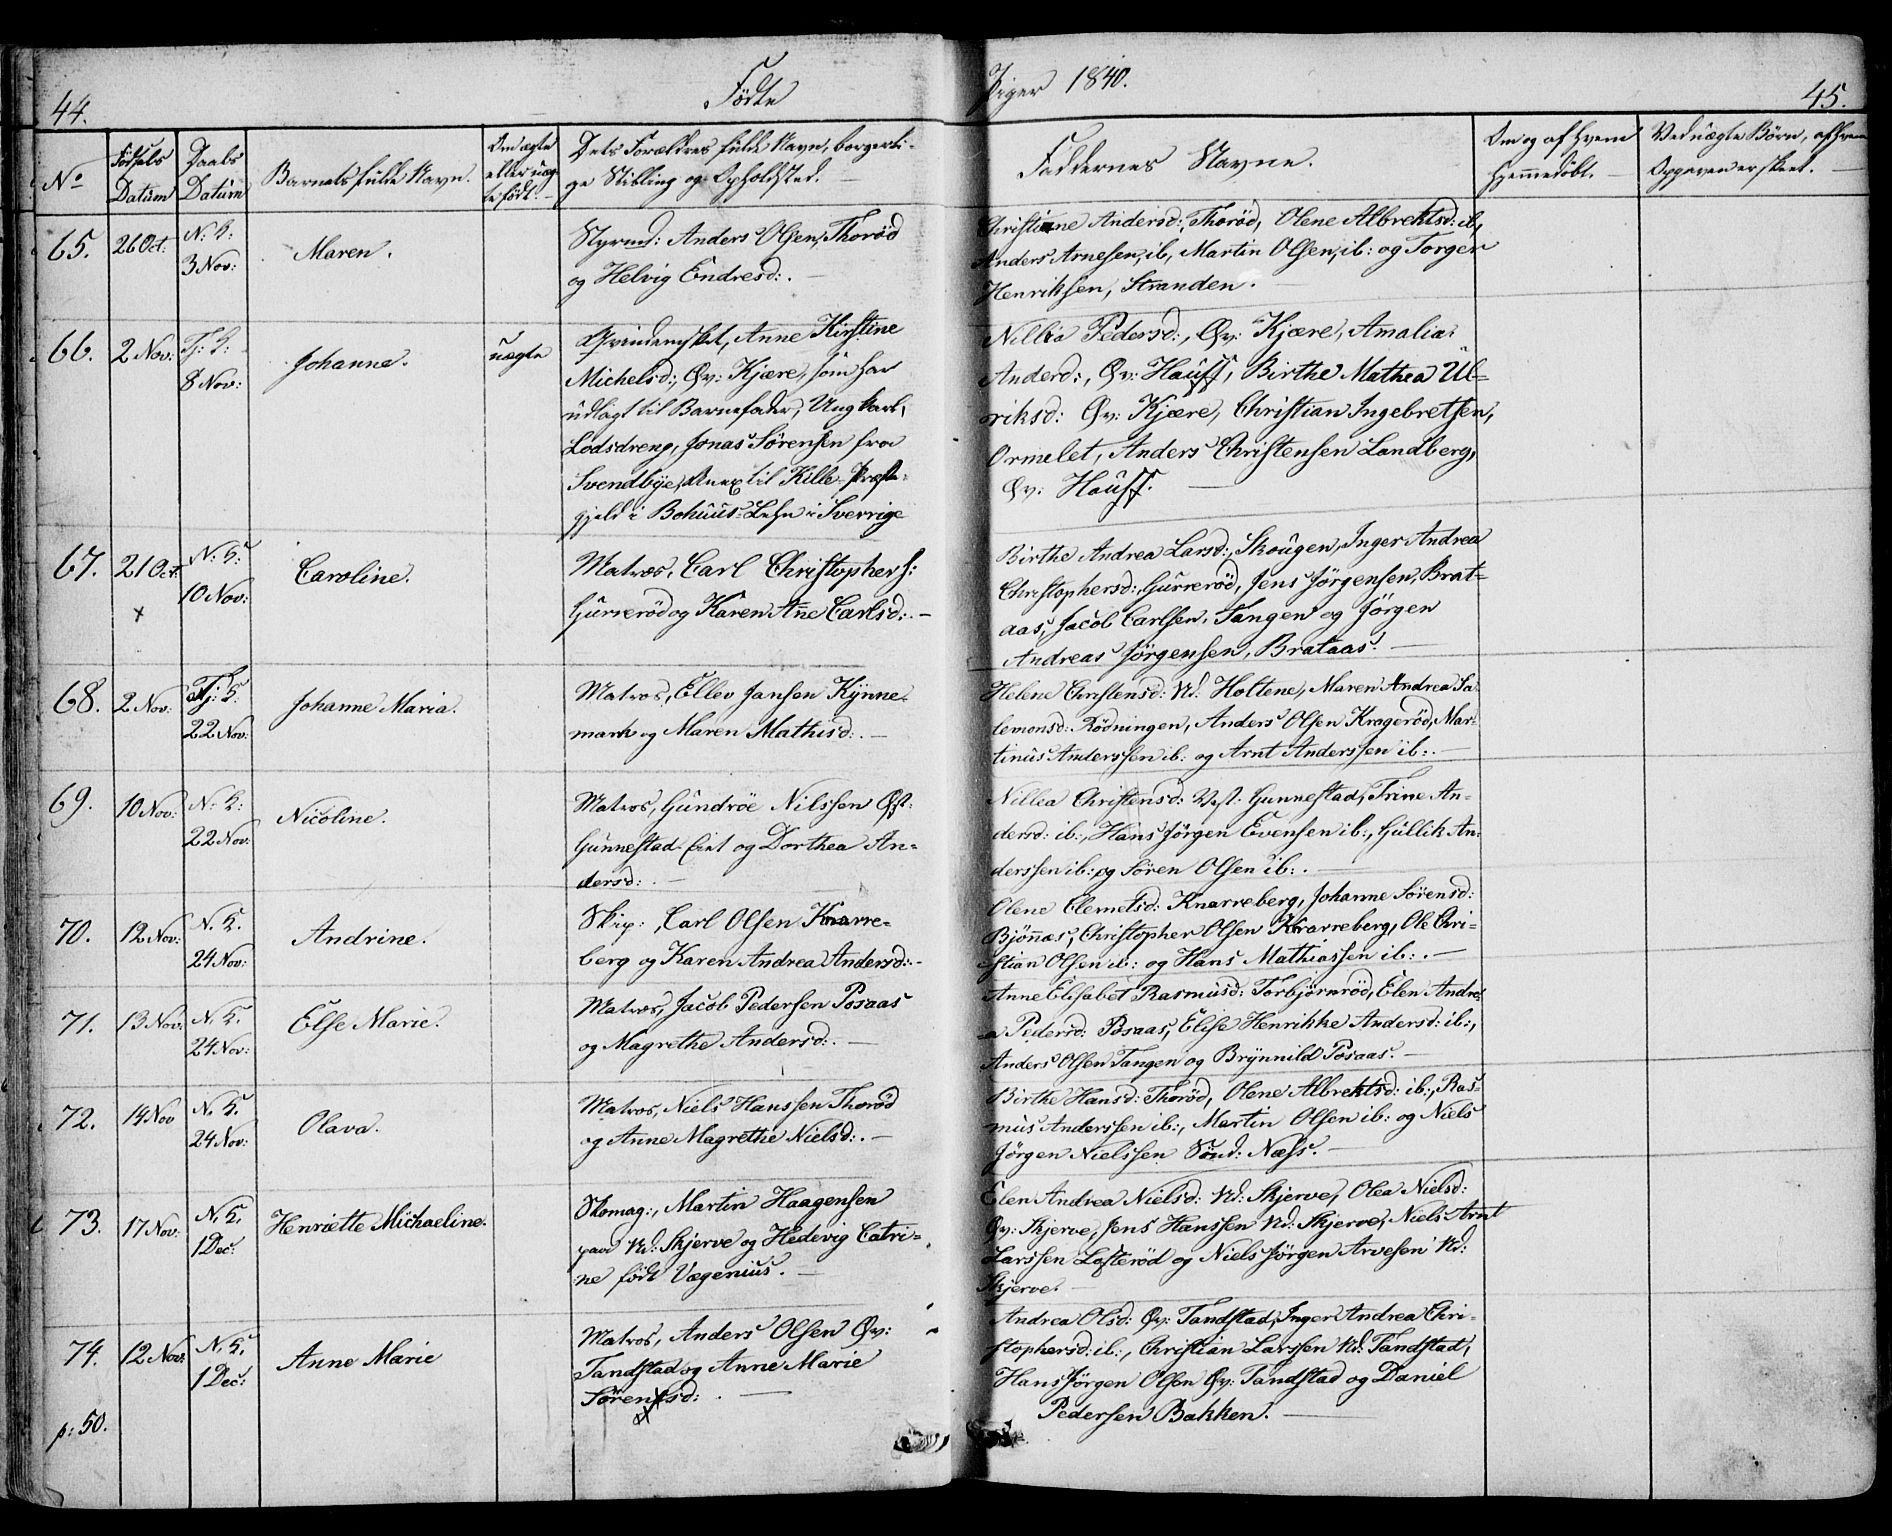 44.
Fødte
Piger 1840.
45.
No
Fødsels Datum
Daabs Datum
Barnets fulde Navn.
Om ægte eller uægte født.
Dets Forældres fulde Navn, borgerlige Stilling og Opholdsted.
Faddernes Navne.
Om og af hvem hjemmedøbt.
Ved uægte Børn, af hvem Opgaven er skeet.
65.
26 Oct:
N: K:
3 Nov:
Maren.
Styrmd: Anders Olsen, Thorød
og Helvig Endresd:. —
Christiane Andersd:, Thorød, Olene Albrektsd: ib,
Anders Arnesen, ib, Martin Olsen, ib: og Torger
Henriksen, Stranden. —
66.
2 Nov:
Tj: K:
8 Nov:
Johanne.
uægte
Qvindemsket, Anne Kirstine
Michelsd:, Øv: Kjære, som har
udlagt til Barnefader, Ungkarl,
Lodsdreng, Jonas Sørensen fra
Svendbye, Anex til Kille Præste-
gjeld i Bohuus-Lehn i Sverrige
Nillia Pedersd:, Øv: Kjære, Amalia
Anderd:, Øv: Hauff, Birthe Mathea Ul=
riksd: Øv: Kjære, Christian Ingebretsen,
Ormelet, Anders Christensen Landberg,
Øv: Hauff. —
67.
21 Oct:
x
N: K:
10 Nov:
Caroline.
Matros, Carl Christophers:
Gurrerød og Karen Anne Carlsd:. —
Birthe Andrea Larsd:, Skougen, Inger Andrea
Christophersd:, Gurrerød, Jens Jørgensen, Brat-
aas, Jacob Carlsen, Tangen og Jørgen
Andreas Jørgensen, Brataas. —
68.
2 Nov:
Tj: K.
22 Nov:
Johanne Maria.
Matros, Ellev Jansen Kynne-
mark og Maren Mathisd:. —
Helene Christensd: Nd: Holtene, Maren Andrea Sa-
lemonsd: Rødningen, Anders Olsen Kragerød, Mar-
tinus Anderssen ib: og Arnt Anderssen ib:. —
69.
10 Nov:
N: K:
22 Nov:
Nicoline.
Matros, Gundrøe Nilssen Øst:
Gunnestad Eiet og Dorthea An=
dersd:. —
Nillea Christensd: Vest: Gunnestad, Trine An-
dersd: ib:, Hans Jørgen Evensen ib:, Gullik An-
derssen ib: og Søren Olsen ib:. —
70.
12 Nov:
N. K.
24 Nov:
Andrine.
Skip:, Carl Olsen Knarre-
berg og Karen Andrea Andersd:. -
Olene Clemetsd: Knarreberg, Johanne Sørensd:
Bjønnæs, Christopher Olsen Knarreberg, Ole Chri-
stian Olsen ib: og Hans Mathiassen ib:. —
71.
13 Nov:
N. K.
24 Nov:
Else Marie.
Matros, Jacob Pedersen Posaas
og Magrethe Andersd:. —
Anne Elisabet Rasmusd: Torbjørnrød, Elen Andre-
a Pedersd: Posaas, Elise Henrikke Andersd: ib:,
Anders Olsen Tangen og Brynnild Posaas. —
72.
14 Nov
N. K.
24 Nov:
Olava.
Matros, Niels Hanssen Thorød
og Anne Magrethe Nielsd:. —
Birthe Hansd: Thorød, Olene Albrektsd: ib:, Ras-
mus Anderssen ib:, Martin Olsen ib: og Niels
Jørgen Nielssen Sønd: Næss. —
73.
17 Nov:
N. K.
1 Dec:
Henriette Michaeline.
Skomag:, Martin Haagensen
paa Nd: Skjerve og Hedevig Catri-
ne født Vægenius. —
Elen Andrea Nielsd: Nd: Skjerve, Olea Nielsd:
Øv: Skjerve, Jens Hanssen Nd: Skjerve, Niels Arnt
Larssen Lofterød og Niels Jørgen Arvesen Nd:
Skjerve. —
74.
12 Nov:
N. K.
1 Dec:
Anne Marie
Matros, Anders Olsen Øv:
Tandstad og Anne Marie
Sørensd:. —
Andrea Olsd: Øv: Tandstad, Inger Andrea Chri-
stophersd: ib:, Christian Larssen Nd: Tandstad,
Hans Jørgen Olsen Øv: Tandstad og Daniel
Pedersen Bakken. —
p: 50.